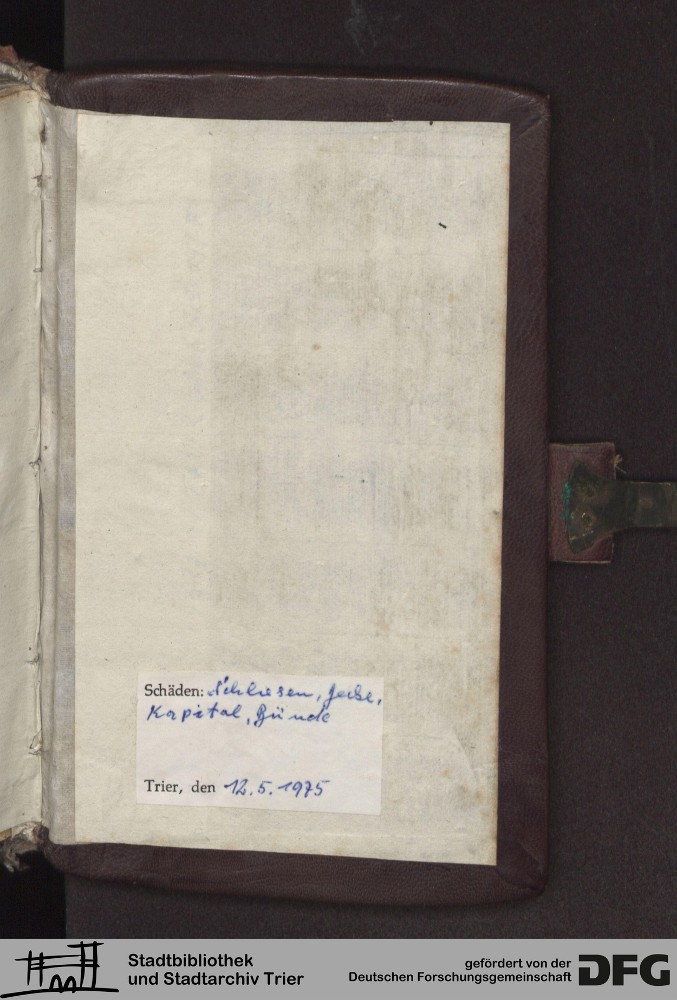 Schäden: Schliesen, Decke,
Kapital, Bünde
Trier, den 12.5.1975
Stadtbibliothek
und Stadtarchiv Trier
gefördert von der
Deutschen Forschungsgemeinschaft
DFG